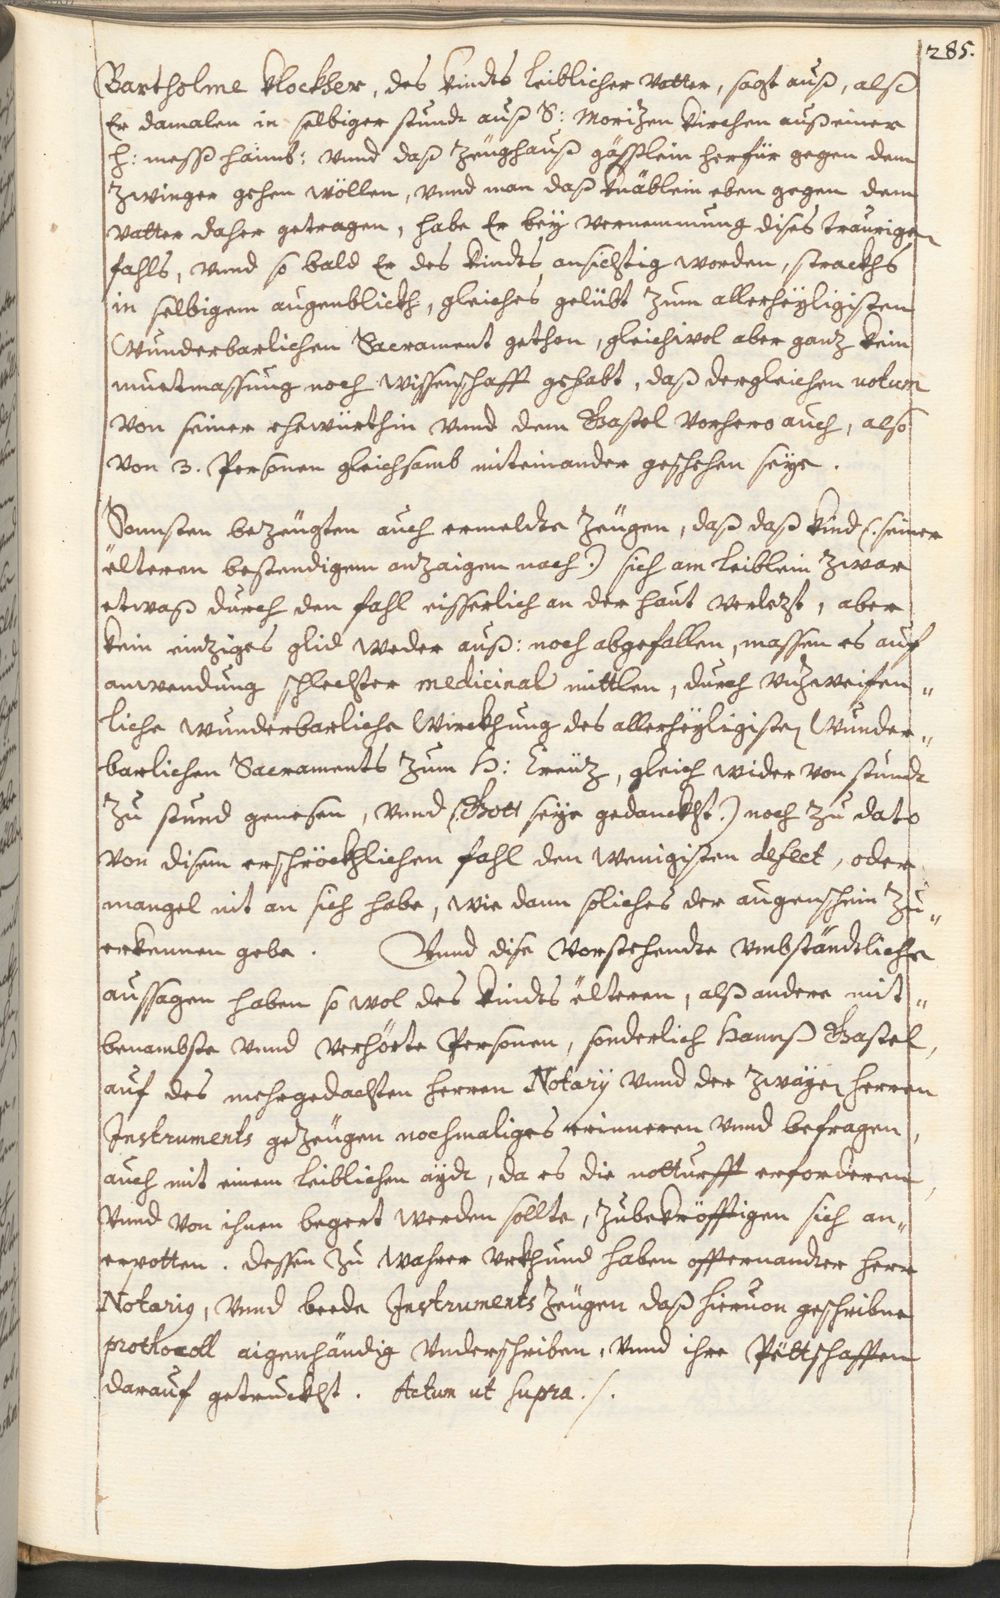 285.
Bartholme Klockher, des Kindts leiblicher Vatter, sagt auß, alß
Er damalen in selbiger stundt auß S: Morizen Kirchen auß einer
H: mess haimb: vnnd daß Zeüghauß gässlein herfür gegen dem
Zwinger gehen wöllen, vnnd man daß Knäblein eben gegen dem
Vatter daher getragen, habe Er bey vernemmung dises traurigen
fahls, vnnd so bald Er des Kindts ansichtig worden, strackhs
in selbigem augenblickh, gleiches gelübt zum allerheyligisten
Wunderbarlichen Sacrament gethon, gleichwol aber ganz kein
muetmassung noch wissenschafft gehabt, daß dergleichen votum
von seiner ehewürthin vnnd dem Gastel vorhero auch, also
von 3. Personen gleichsamb miteinander geschehen seye.
Sonnsten bezeügten auch ermeldte Zeügen, daß daß Kind (: seiner
älteren bestendigem anzaigen nach :) sich am leiblein zwar
etwaß durch den fahl eisserlich an der haut verlezt, aber
kein eintziges glid weder auß: noch abgefallen, massen es auf
anwendung schlechter medicinal mittlen, durch vnzweifen„
liche wunderbarliche Wirckhung des allerheyligisten Wunder„
barlichen Sacraments zum H: Creütz, gleich wider von stundt
zu stund genesen, vnnd (: Gott seye gedanckht :) noch zu dato
von disem erschröckhlichen fahl den wenigisten defect, oder
mangel nit an sich habe, wie dann soliches der augenschein zu„
erkennen gebe. Vnnd dise vorstehendte vmbständtliche
aussagen haben so wol des Kindts älteren, alß andere mit„
benambste vnnd verhörte Personen, sonderlich Hannß Gastel,
auf des mehrgedachten Herren Notary vnnd der zwayen Herren
Instruments gezeügen nochmaliges erinneren vnnd befragen,
auch mit einem leiblichen aydt, da es die notturfft erforderen,
vnnd von ihnen begert werden sollte, zubekröfftigen sich an„
erpotten. Dessen zu wahrer vrkhund haben offternandter Herr
Notarius, vnnd beede Instruments Zeügen daß hieruon geschribne
prothocoll aigenhändig vnderschriben, vnnd ihre Pëttschafften
darauf getruckht. Actum ut supra ./.